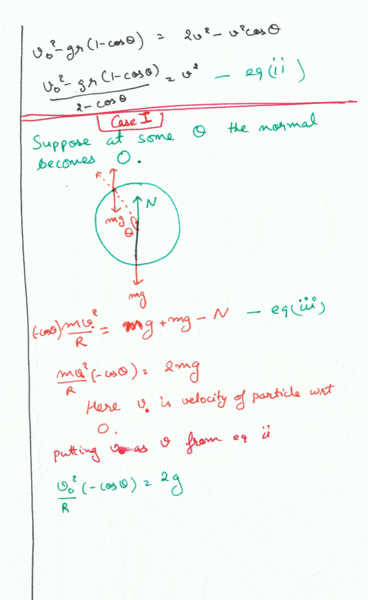 v₀² - gr(1-cosθ) = 2v² - v²cosθ
v₀² - gr(1-cosθ) / 2-cosθ = v² - eq(ii)
Case I
Suppose at some θ the normal
becomes 0.
N
mg
θ
mg
(-cosθ) mv₀²/R = mg + mg - N - eq(iii)
mv₀²/R (-cosθ) = 2mg
Here v₀ is velocity of particle wrt
O.
putting as v from eq ii
v₀²/R (-cosθ) = 2g